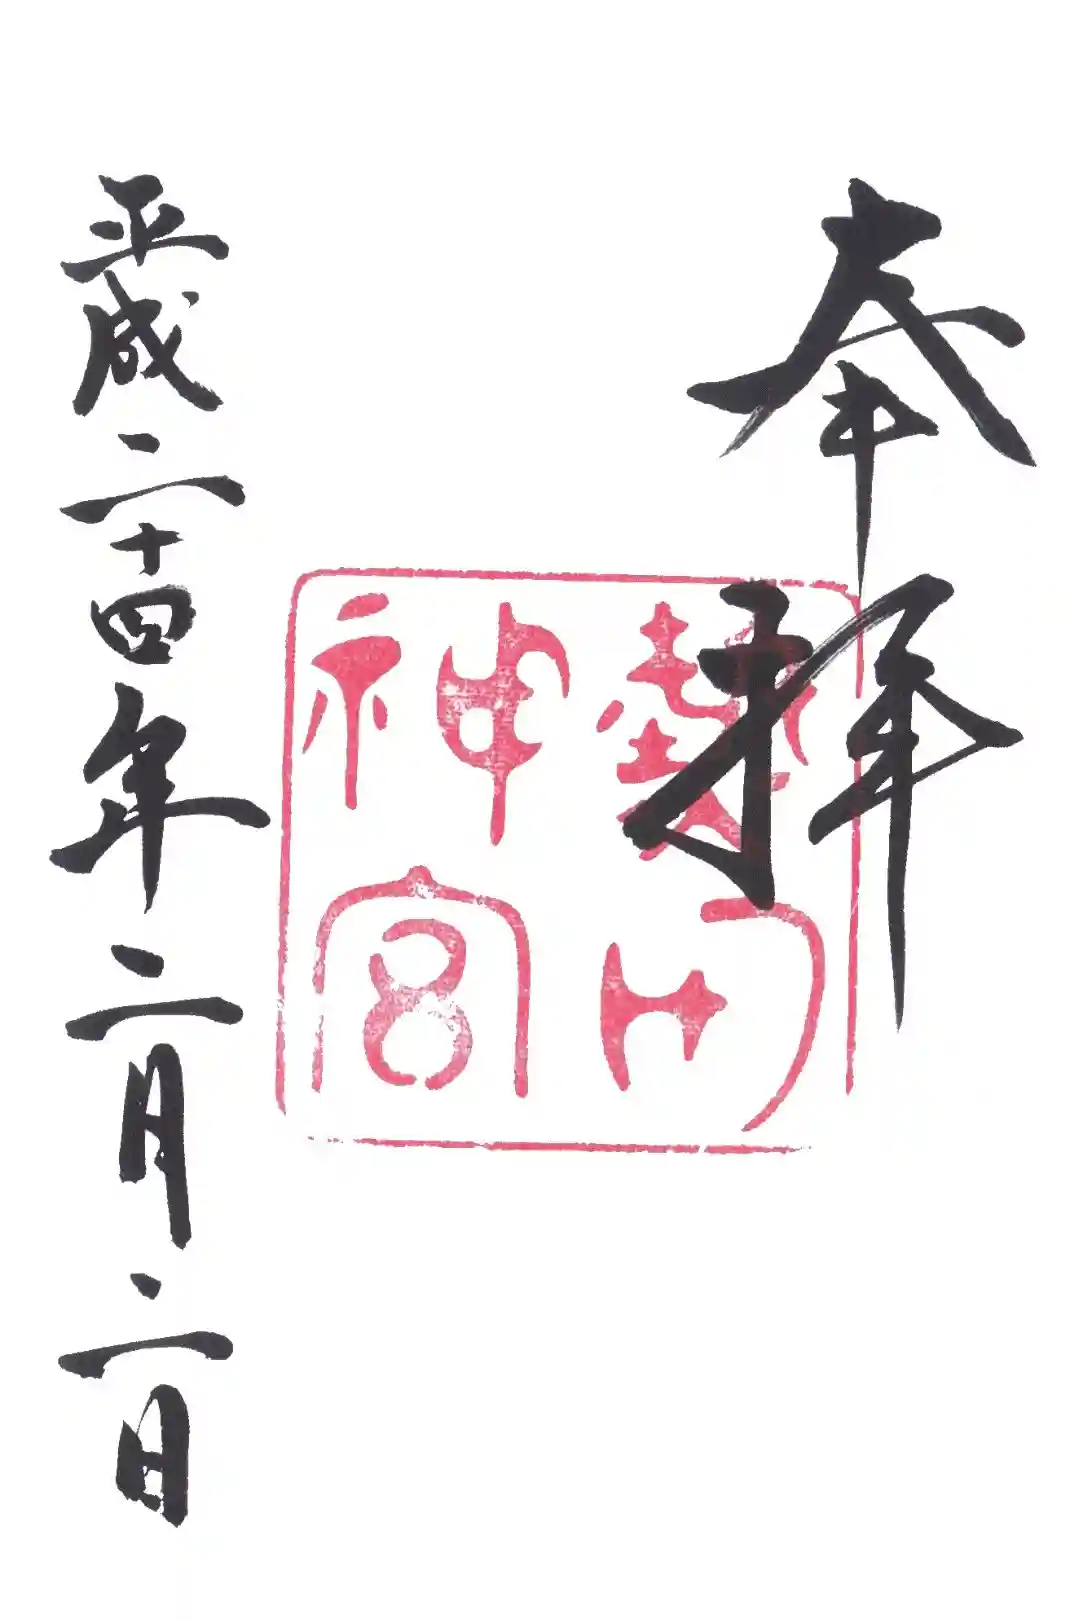 奉拝
熱田
神宮
平成二十四年二月二日